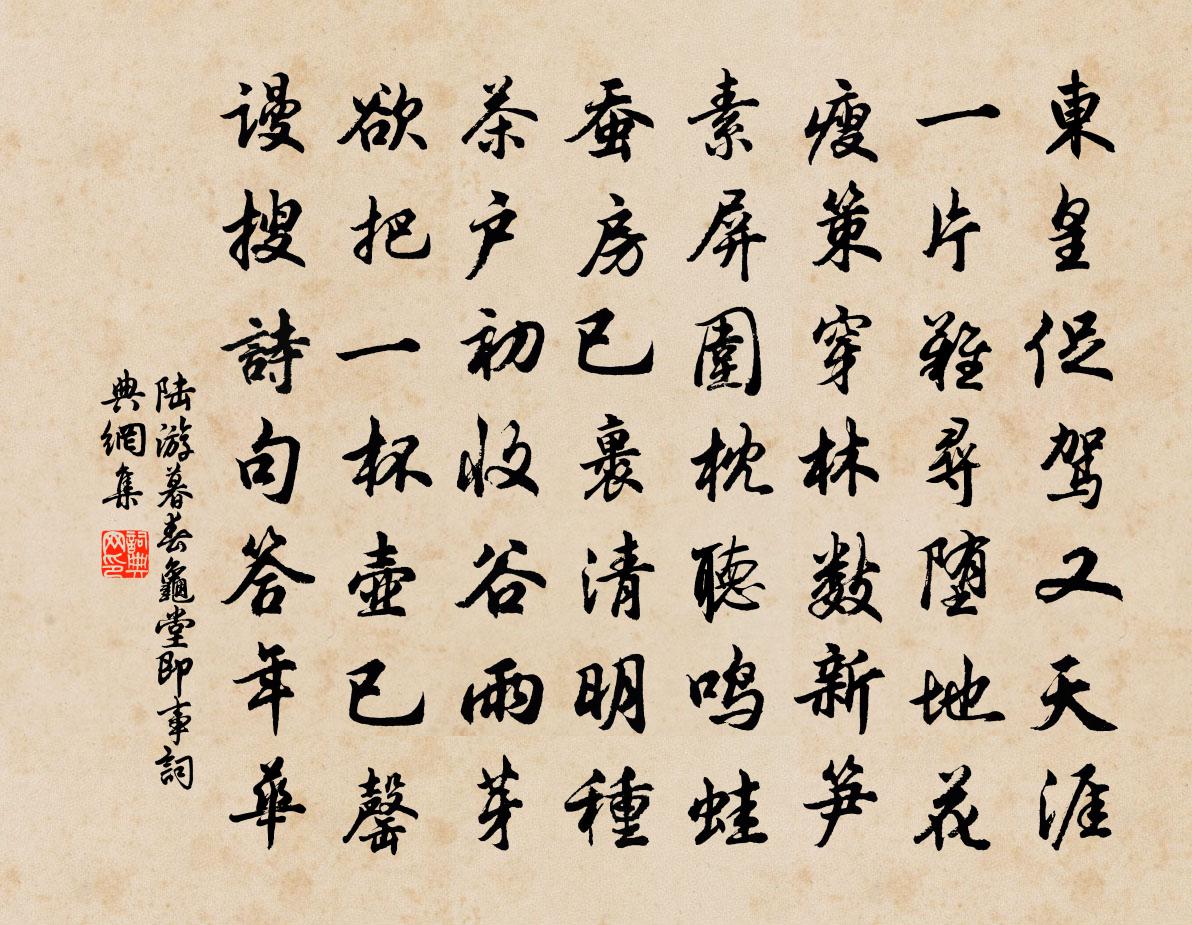 東皇促駕又天涯
一片難尋墮地花
瘦策穿林數新笋
素屏圍枕聽鳴蛙
蚕房已裹清明種
茶户初收谷雨芽
欲把一杯壺已罄
謾搜詩句答年華
陆游暮春龜堂即事詞
典網集
詞典
网印